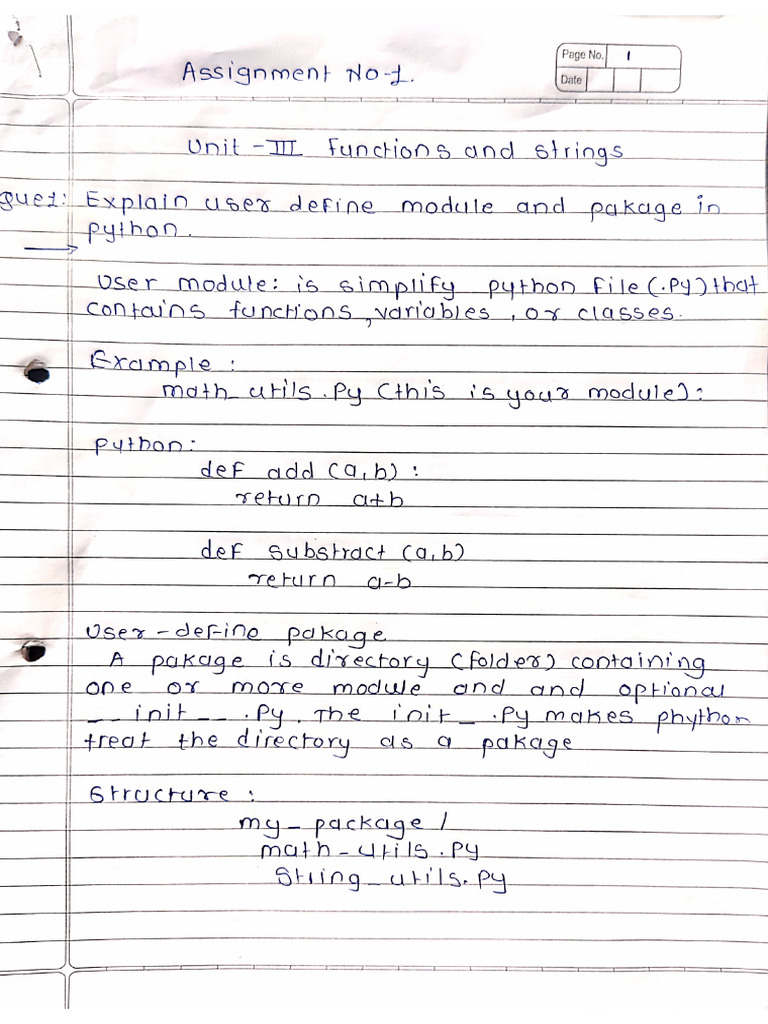 Page No. 1
Assignment No-1.
Date
Unit -III functions and strings
que1: Explain user define module and pakage in
python.
User module: is simplify python file (.py) that
contains functions, variables, or classes.
Example :
math_utils.py (this is your module):
python:
def add (a,b) :
return a+b
def substract (a,b)
return a-b
User-define pakage
A pakage is directory (folder) containing
one or more module and and optional
__init__.py. The init_.py makes phython
treat the directory as a pakage
Structure :
my_package /
math_utils.py
String_utils.py